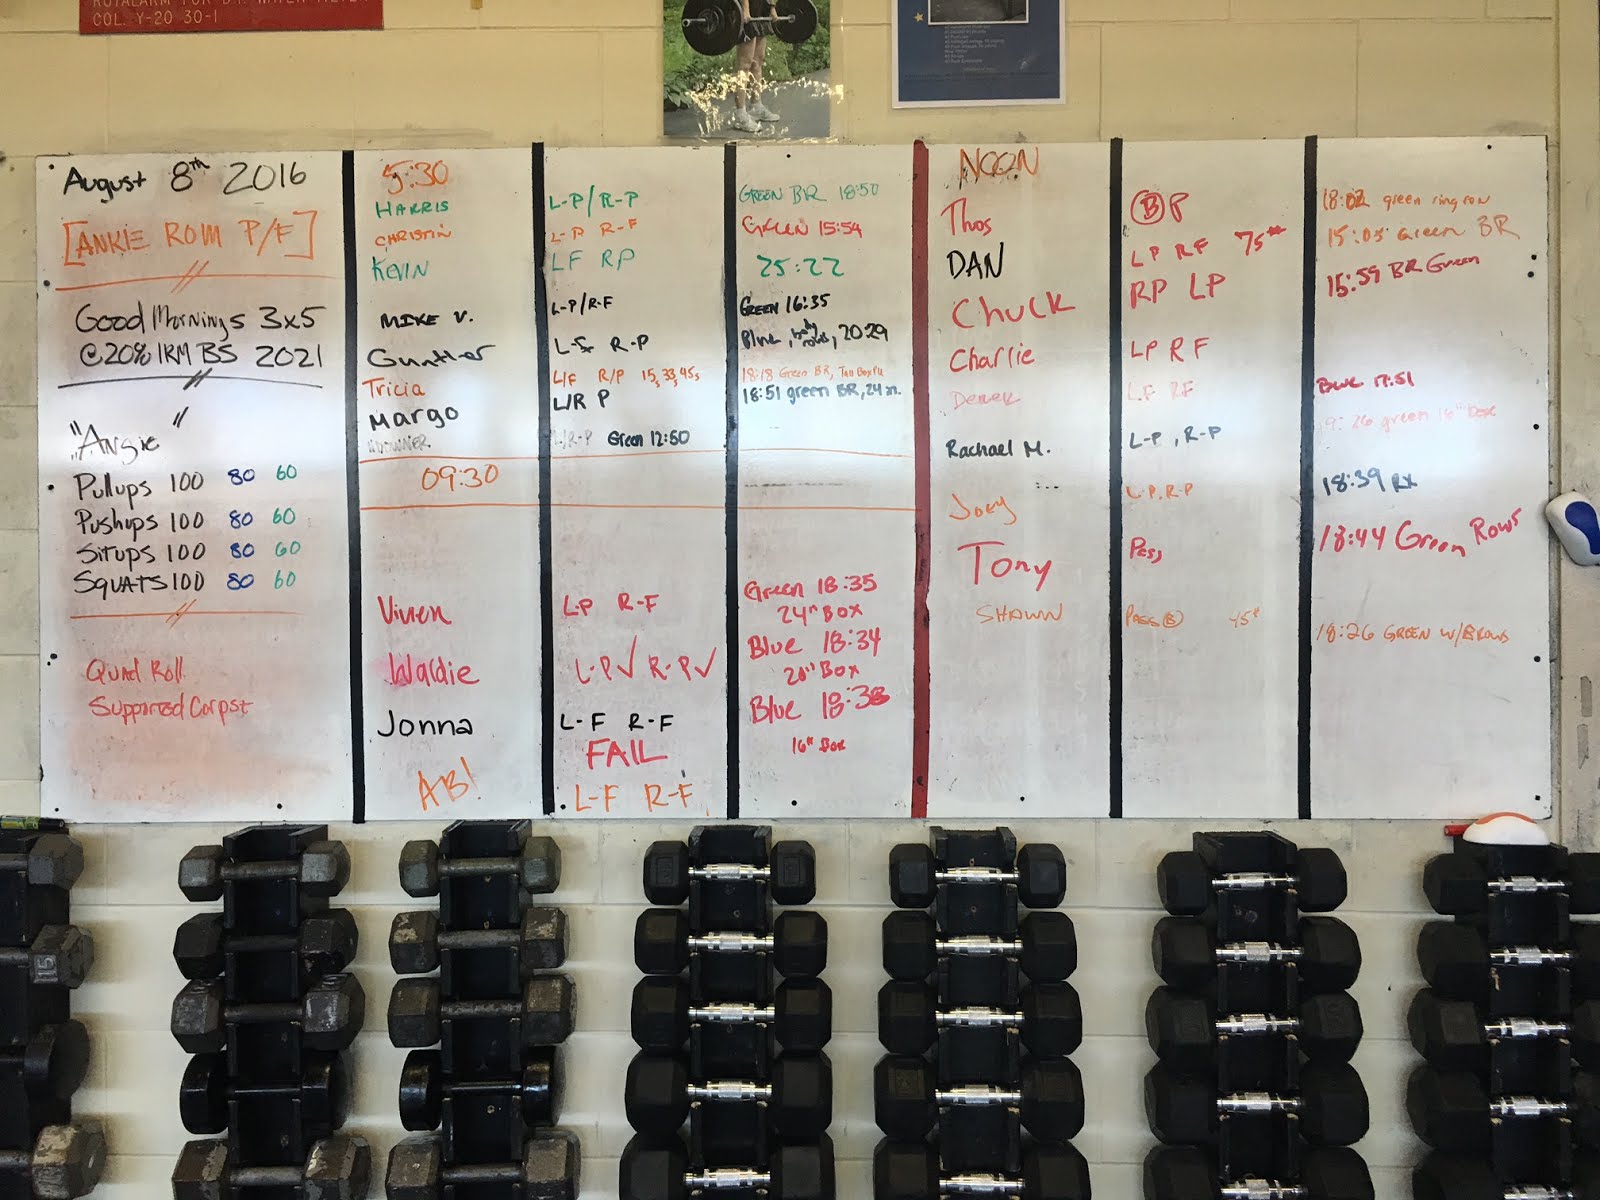 COL. Y-20 30-1
August 8th 2016
[ANKLE ROM P/F]
Good Mornings 3x5
@20% 1RM BS 2021
"Angie"
Pullups 100 80 60
Pushups 100 80 60
Situps 100 80 60
SQUATS 100 80 60
Quad Roll
Supported Corpst
5:30
HARRIS L-P/R-P GREEN BR 18:50
CHRISTIN L-P R-F Green 15:54
KEVIN LF RP 25:22
MIKE V. L-P/R-F GREEN 16:35
Gunther R-P Blue, 20:29
Tricia L/F R/P 15, 33, 45, 18:18 Green BR,
Margo L/R P 18:51 green BR, 24 in.
L/R-P Green 12:50
09:30
Vivien L-P R-F Green 18:35
24" BOX
Waldie L-P✓ R-P✓ Blue 18:34
20" Box
Jonna L-F R-F Blue 18:38
FAIL 16" Box
AB! L-F R-F
NOON
Thos Ⓑ P 18:02 green ring row
DAN LP RF 75# 15:05 Green BR
Chuck RP LP 15:59 BR Green
Charlie LP RF
Derek LF RF Blue 17:51
green 16" box
Rachael M. L-P, R-P
18:39 RX
Joey L-P, R-P
Tony Pass 18:44 Green Rows
SHAWN PASS Ⓑ 45# 18:26 GREEN W/BROWS
15